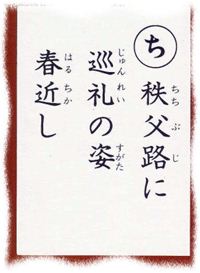 ち
秩父路に
巡礼の姿
春近し
ちちぶじ
じゅんれい
すがた
はるちか